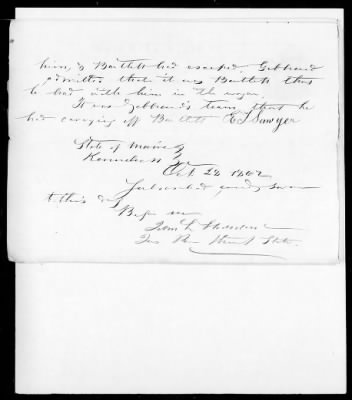 him, & Bartlett had escaped. Gebhard
admitted that it was Bartlett that
he had with him in the wagon.
It was Gebhard's team that he
had carrying off Bartlett E J Sawyer
State of Maine
Kennebec
Oct. 28 1862
Subscribed and sworn
to this day
Before me